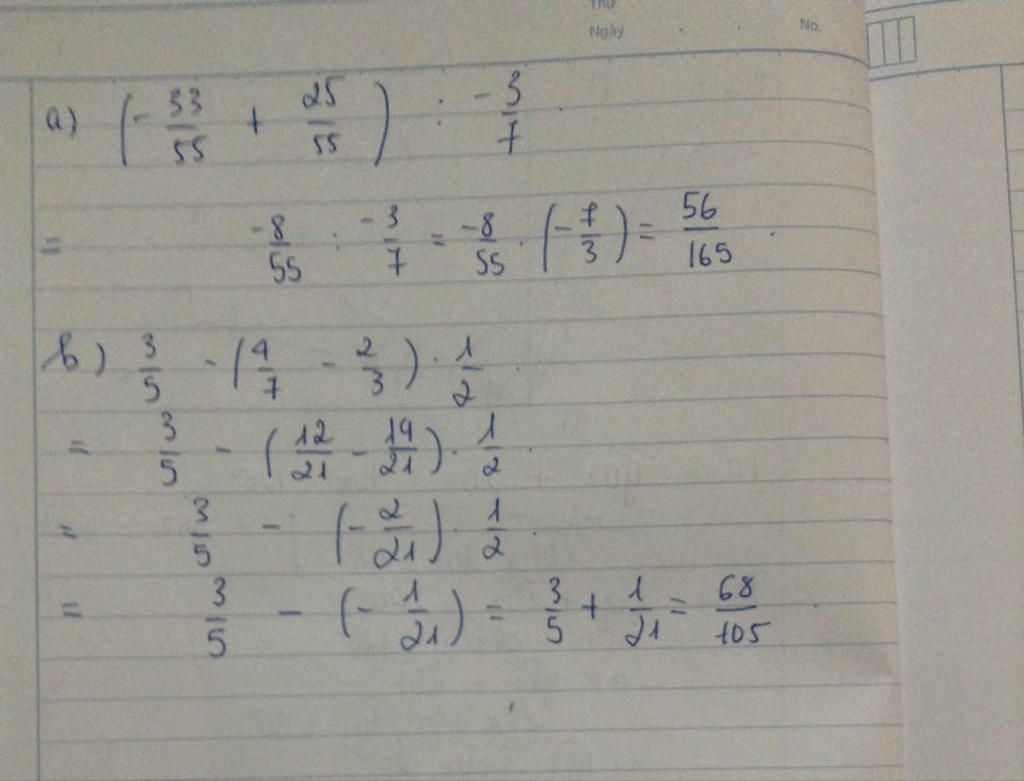 Thứ
Ngày
No.
a) (- 33/55 + 25/55) : -3/7
= -8/55 : -3/7 = -8/55 . (-7/3) = 56/165 .
b) 3/5 - (4/7 - 2/3) . 1/2
= 3/5 - (12/21 - 14/21) . 1/2
= 3/5 - (-2/21) . 1/2
= 3/5 - (-1/21) = 3/5 + 1/21 = 68/105